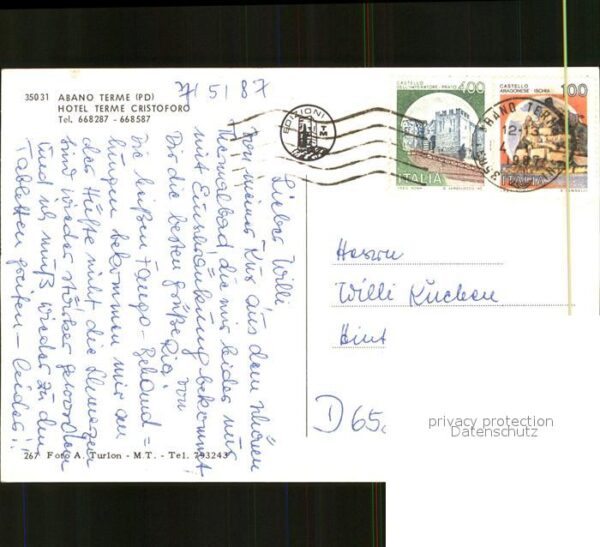 35031 ABANO TERME (PD)
HOTEL TERME CRISTOFORO
Tel. 668287 - 668587
7/5/87
EDIZIONI
TM
CASTELLO
DELL'IMPERATORE - PRATO
400
ITALIA
CASTELLO
ARAGONESE - ISCHIA
100
ITALIA
ABANO TERME
12-
1987
Lieber Willi
von meiner Kur aus dem schönen
Thermalbad die mir leider nur
mit Einschränkung bekommt,
Dir die besten Grüße von
die heißen Fango-Behand=
lungen bekommen mir an
der Hüfte nicht die Schmerzen
sind wieder stärker geworden
und ich muß wieder zu den
Tabletten greifen - leider!
Herrn
Willi Kuchen
Hint
D 65
privacy protection
Datenschutz
267 Foto A. Turlon - M.T. - Tel. 793243